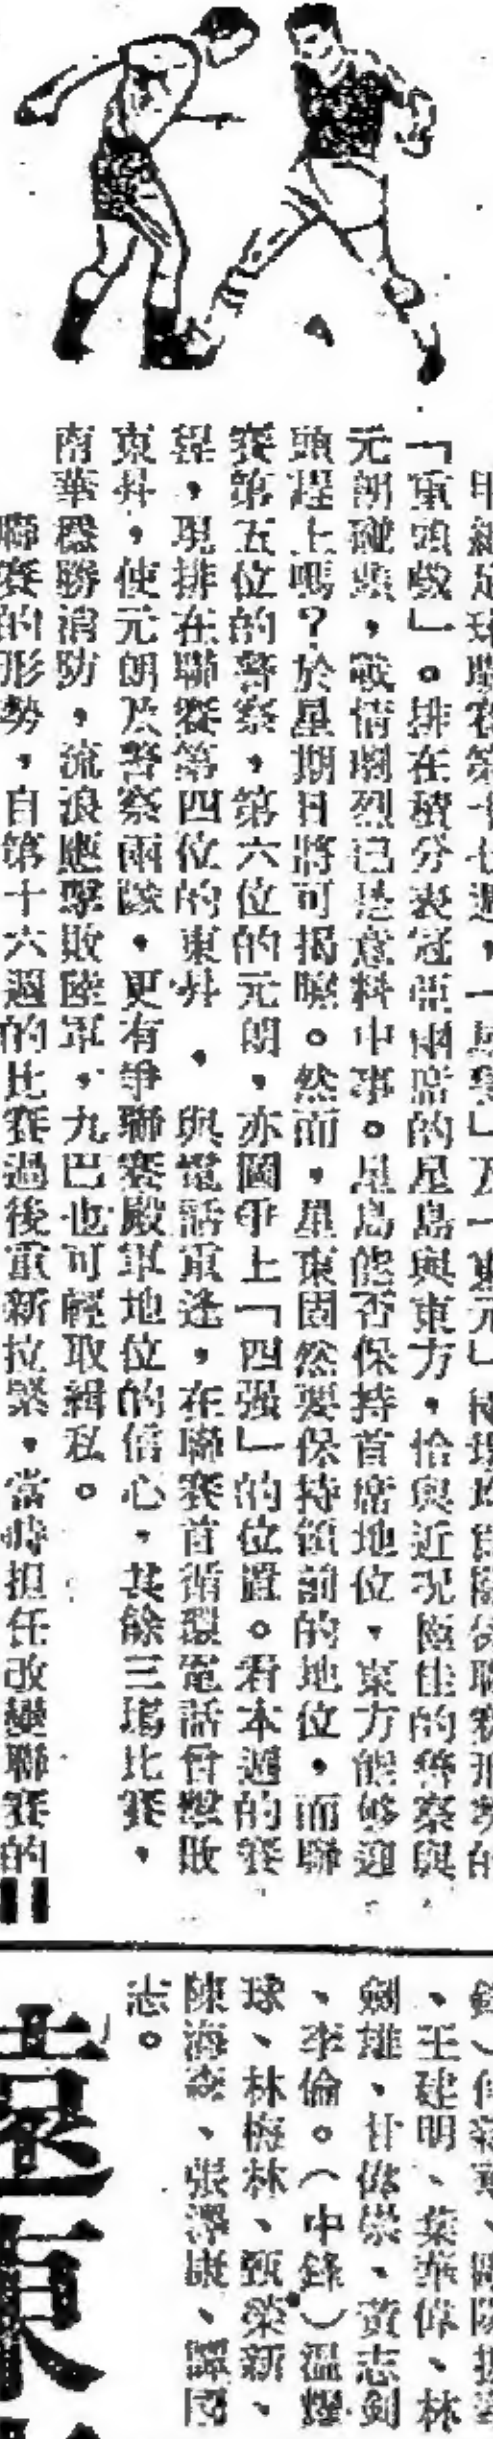 甲組足球聯賽第十七週，「星警」及「東元」
「重頭戲」。排在積分表冠亞兩席的星島與東方，恰與近況極佳的警察與
元朗碰頭，戰情劇烈已是意料中事。星島能否保持首席地位，東方能够迎
頭趕上嗎？於星期日將可揭曉。然而，星東固然要保持領前的地位，而聯
賽第五位的警察，第六位的元朗，亦圖爭上「四强」的位置。看本週的賽
程，現排在聯賽第四位的東昇，與電話重逢，在聯賽首循環電話曾擊敗
東昇，使元朗及警察兩隊，更有爭聯賽殿軍地位的信心，其餘三塲比賽，
南華穩勝消防，流浪應擊敗陸軍，九巴也可輕取緝私。
聯賽的形勢，自第十六週的比賽過後重新拉緊，當時担任改變聯賽的
、王建明、葉華偉、林
劍雄、甘偉崇、黃志釗
、李倫。（中鋒）溫耀
球、林梅林、甄榮新、
陳海森、張澤康、譚國
志。
遠東